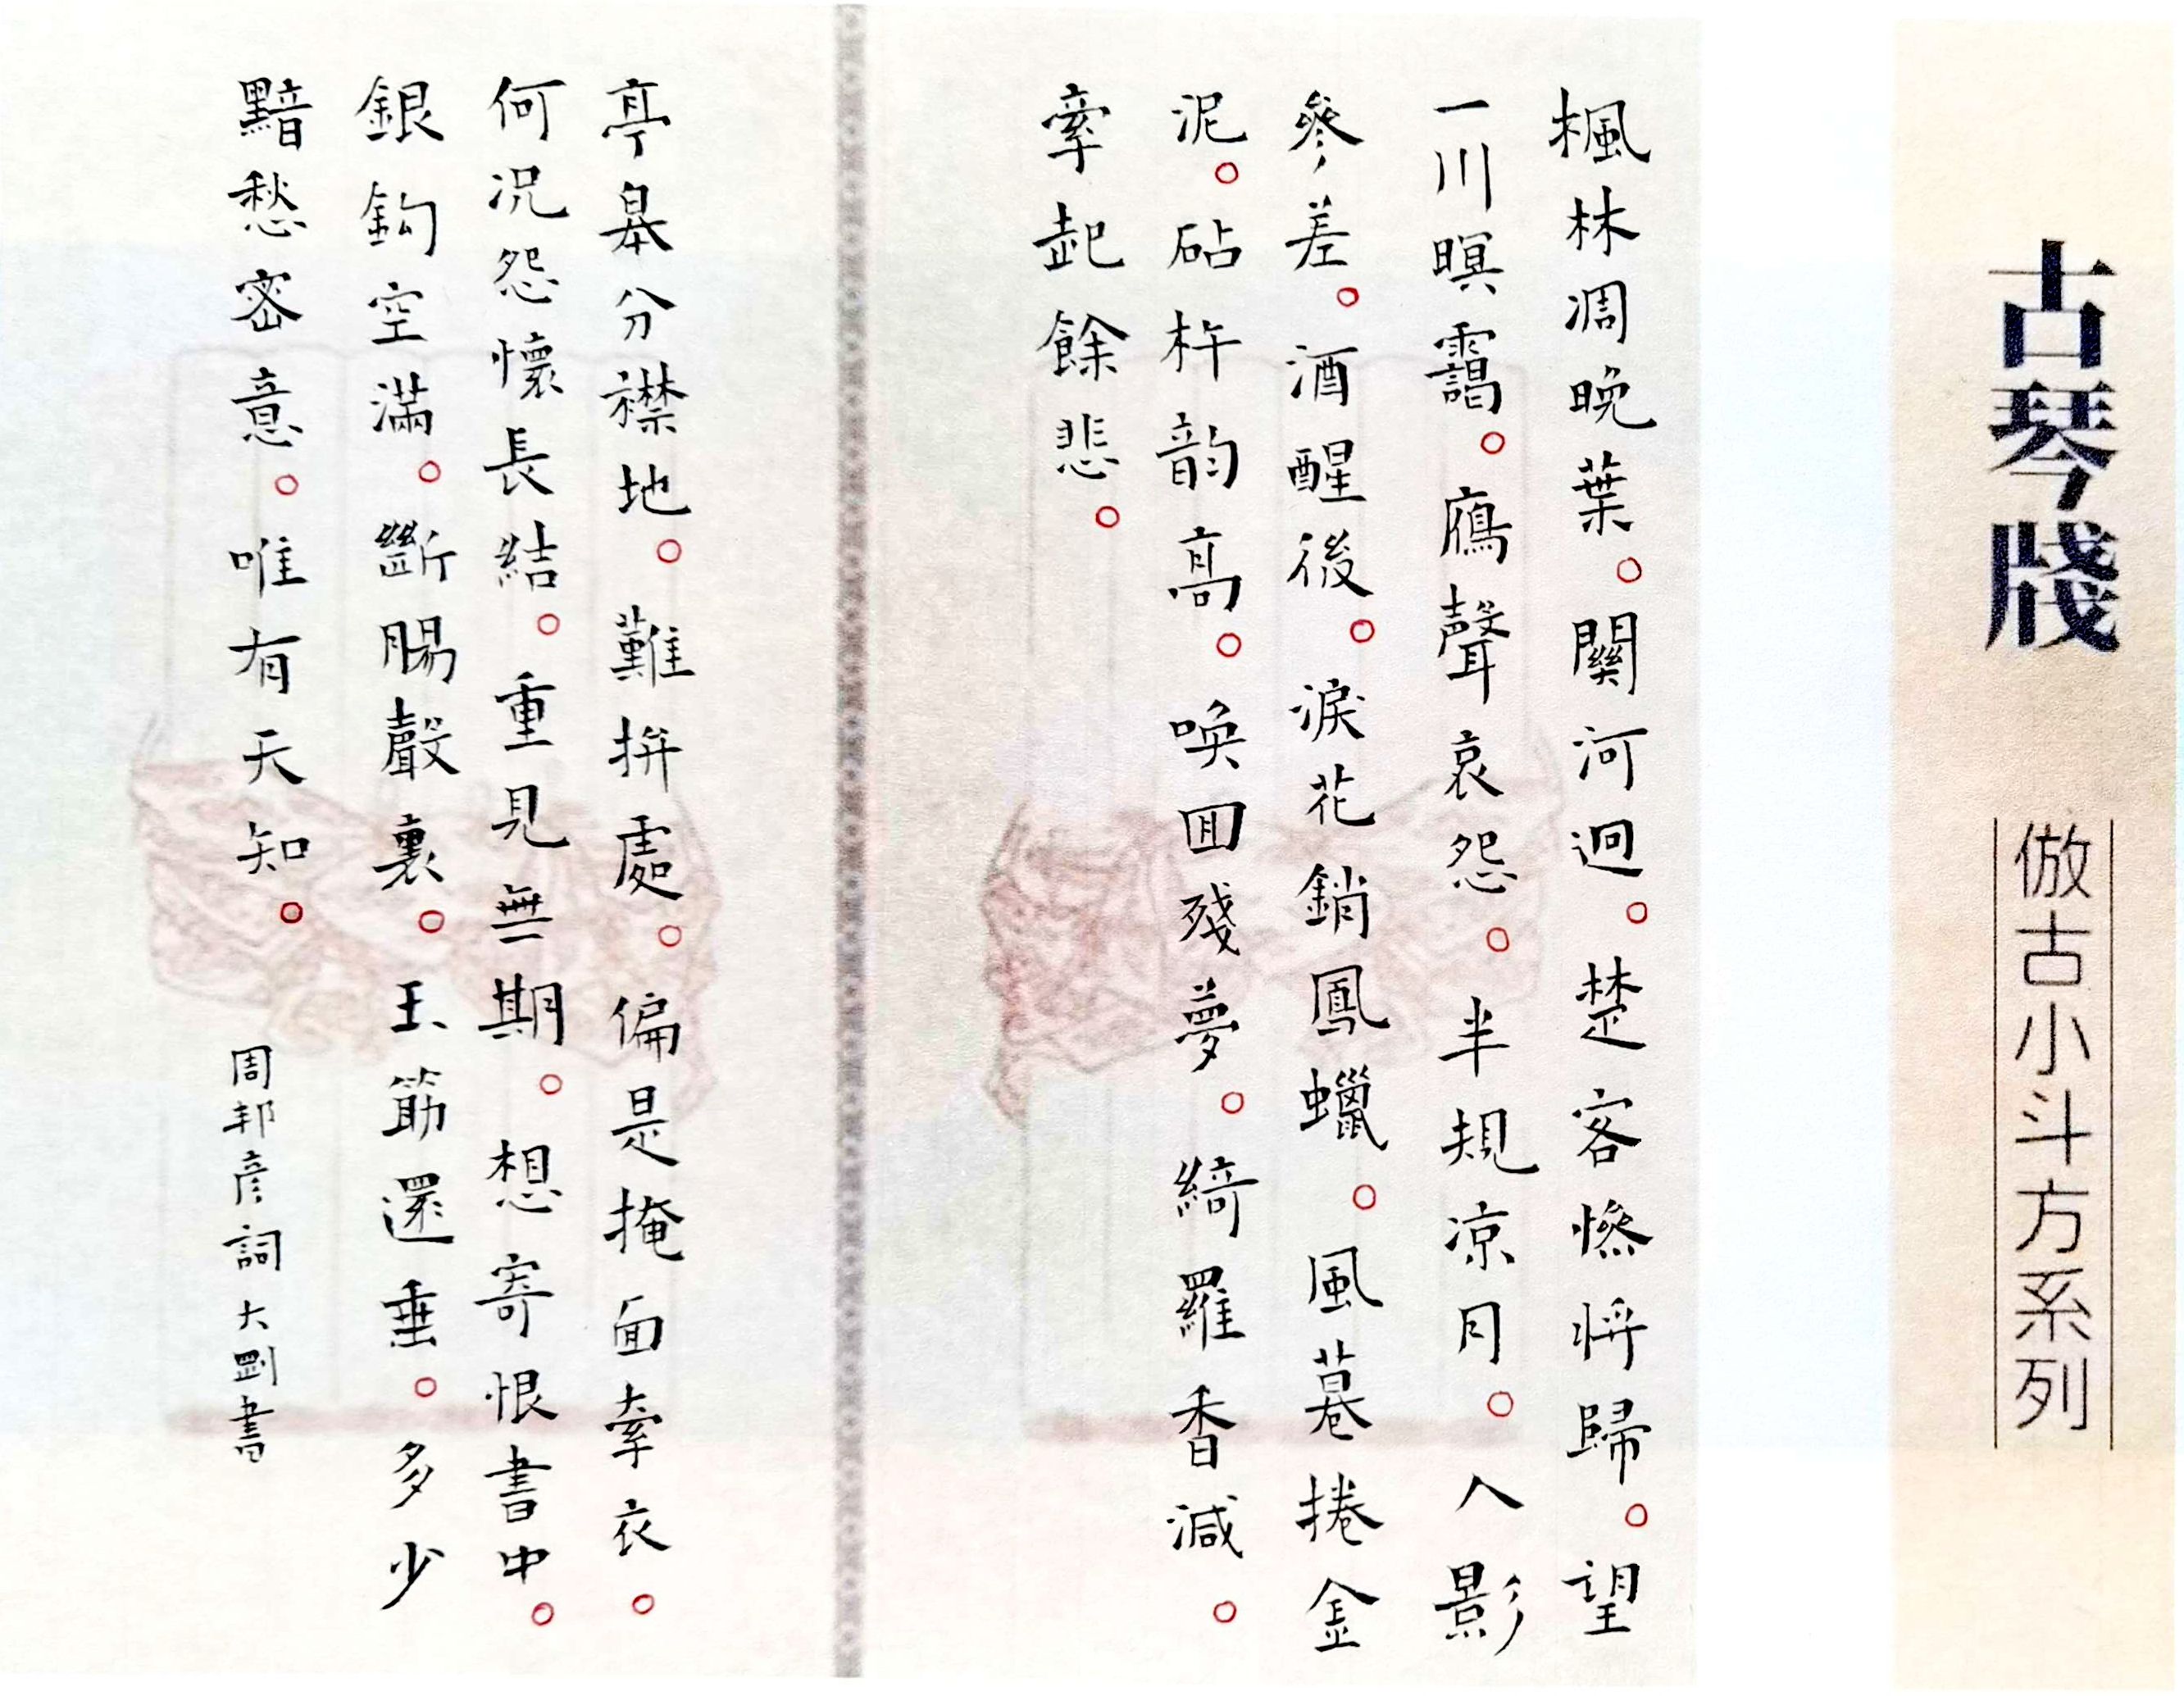 古琴牋
倣古小斗方系列
楓林凋晚葉。關河迥。楚客慘將歸。望
一川暝靄。鴈聲哀怨。半規涼月。人影
參差。酒醒後。淚花銷鳳蠟。風幕捲金
泥。砧杵韵高。喚囬殘夢。綺羅香減。
牽起餘悲。
亭皋分襟地。難拚處。偏是掩面牽衣。
何況怨懷長結。重見無期。想寄恨書中。
銀鈎空滿。斷腸聲裏。玉筯還垂。多少
黯愁密意。唯有天知。
周邦彦詞 大剛書